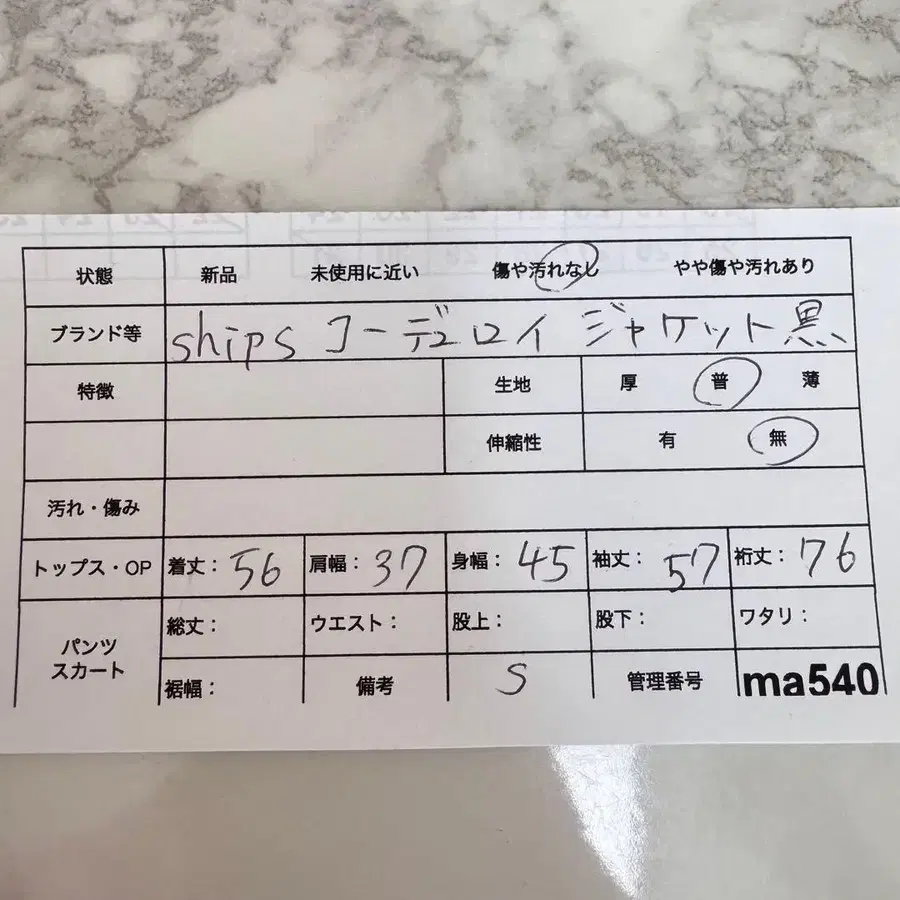 状態 新品 未使用に近い 傷や汚れなし やや傷や汚れあり
ブランド等 ships コーデュロイ ジャケット 黒
特徴 生地 厚 普 薄
伸縮性 有 無
汚れ・傷み
トップス・OP 着丈: 56 肩幅: 37 身幅: 45 袖丈: 57 裄丈: 76
パンツ スカート 総丈: ウエスト: 股上: 股下: ワタリ:
裾幅: 備考 S 管理番号 ma540